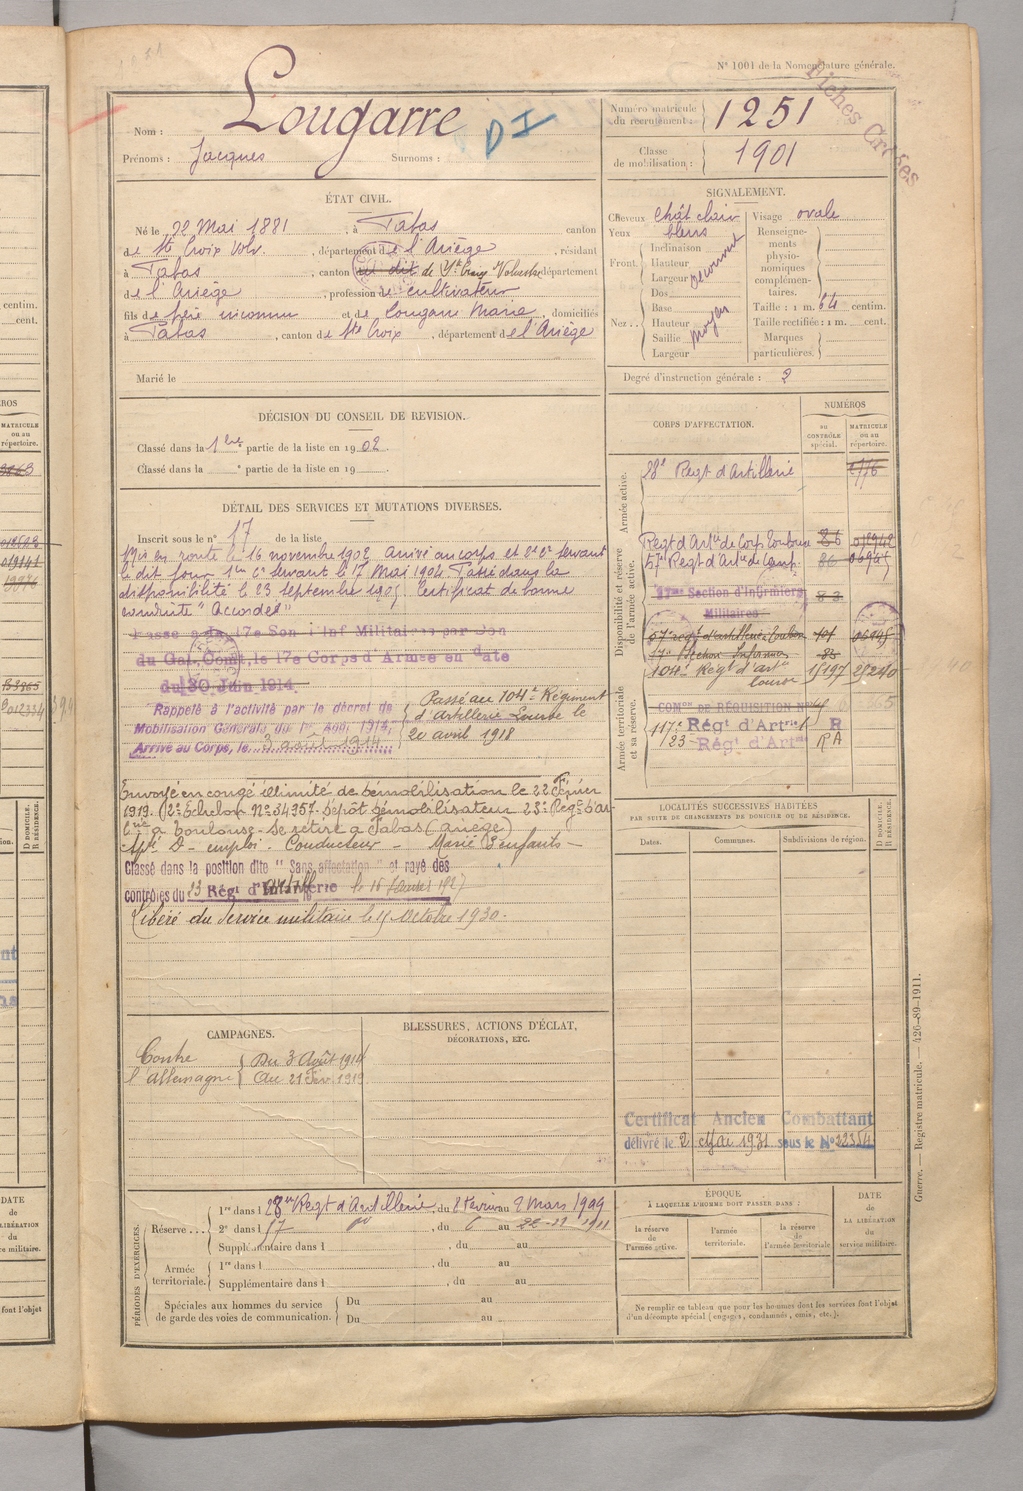 N° 1001 de la Nomenclature générale.
Fiches Croises
Nom : Lougarre
D I
Prénoms : Jacques Surnoms :
Numéro matricule du recrutement : 1251
Classe de mobilisation : 1901
ÉTAT CIVIL.
Né le 22 Mai 1881, à Tabas canton
de Ste Croix Volv., département de l'Ariège, résidant
à Tabas, canton du dit de Ste Croix Volvestre département
de l'Ariège, profession de cultivateur
fils de père inconnu et de Lougarre Marie, domiciliés
à Tabas, canton de Ste Croix, département de l'Ariège
Marié le
SIGNALEMENT.
Cheveux chât clair
Yeux bleus
Front. Inclinaison
Hauteur
Largeur
découvert
Nez.. Dos
Base
Hauteur
Saillie
Largeur
moyen
Visage ovale
Renseignements physionomiques complémentaires.
Taille : 1 m. 64 centim.
Taille rectifiée : 1 m. cent.
Marques particulières.
Degré d'instruction générale : 2
DÉCISION DU CONSEIL DE REVISION.
Classé dans la 1re partie de la liste en 1902
Classé dans la e partie de la liste en 19
DÉTAIL DES SERVICES ET MUTATIONS DIVERSES.
Inscrit sous le n° 17 de la liste
Mis en route le 16 novembre 1902 Arrivé au corps et 2e cr servant
le dit jour 1er cr servant le 17 Mai 1904 Passé dans la
disponibilité le 23 septembre 1905. Certificat de bonne
conduite "Accordé"
Passé à la 17e Son d'Inf Militaires par Don
du Gal. Comt. le 17e Corps d'Armée en date
du 30 Juin 1914
Rappelé à l'activité par le décret de
Mobilisation Générale du 1er Août 1914,
Arrivé au Corps, le 3 août 1914
Passé au 104e Régiment
d'artillerie Lourde le
20 avril 1918
Envoyé en congé illimité de démobilisation le 22 Février
1919. 2e Echelon N° 34357. Dépôt démobilisateur 23e Regt d'ar
tie à Toulouse. Se retire à Tabas (Ariège)
Apt. D emploi. Conducteur - Marié enfants -
Classé dans la position dite " Sans affectation " et rayé des
contrôles du 23 Régt d'Infanterie le 16 1927
Libéré du Service militaire le Octobre 1930.
CORPS D'AFFECTATION.
NUMÉROS
au CONTRÔLE spécial.
MATRICULE ou au répertoire.
Armée active.
28e Regt d'Artillerie 1776
Disponibilité et réserve de l'armée active.
Regt d'Arie de Corp Toulouse 86 018942
57e Regt d'Arie de Camp. 86 06945
17me Section d'Infirmiers Militaires 83
57e regt d'artillerie Toulouse 101 06945
17e Section Infirmiers 83
104e Régt d'artie lourde 15197 25240
Armée territoriale et sa réserve.
COMon DE RÉQUISITION N°
117e Régt d'Artrie R
23 Régt d'Artrie RA
LOCALITÉS SUCCESSIVES HABITÉES
PAR SUITE DE CHANGEMENTS DE DOMICILE OU DE RÉSIDENCE.
Dates. Communes. Subdivisions de région. D DOMICILE. R RÉSIDENCE.
CAMPAGNES.
Contre l'Allemagne { Du 3 Août 1914
Au 21 Fév. 1919
BLESSURES, ACTIONS D'ÉCLAT,
DÉCORATIONS, ETC.
Certificat Ancien Combattant
délivré le 2 Mai 1931 sous le N° 22354
PÉRIODES D'EXERCICES.
Réserve... 1re dans l 28me Regt d'Artillerie, du 8 Février au 2 Mars 1909
2e dans l 57 do, du 6 au 22-11 1911
Supplémentaire dans l , du au
Armée territoriale. 1re dans l , du au
Supplémentaire dans l , du au
Spéciales aux hommes du service
de garde des voies de communication. Du au
Du au
ÉPOQUE
À LAQUELLE L'HOMME DOIT PASSER DANS :
la réserve de l'armée active.
l'armée territoriale.
la réserve de l'armée territoriale
DATE
DE LA LIBÉRATION
du service militaire.
Ne remplir ce tableau que pour les hommes dont les services font l'objet
d'un décompte spécial (engagés, condamnés, omis, etc.).
Guerre. — Registre matricule. — 426-89-1911.